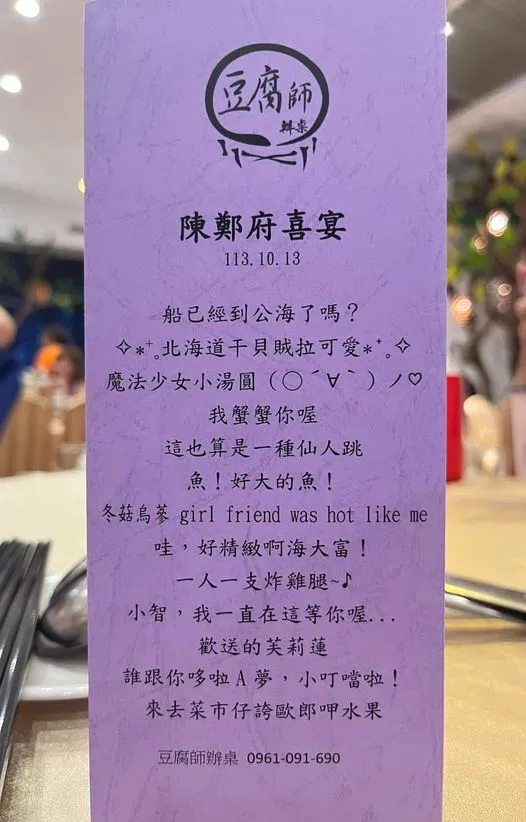 豆腐師
辦桌
陳鄭府喜宴
113.10.13
船已經到公海了嗎？
✧*⁺˳北海道干貝賊拉可愛*⁺˳✧
魔法少女小湯圓（◯´∀`）ノ♡
我蟹蟹你喔
這也算是一種仙人跳
魚！好大的魚！
冬菇烏蔘 girl friend was hot like me
哇，好精緻啊海大富！
一人一支炸雞腿~♪
小智，我一直在這等你喔...
歡送的芙莉蓮
誰跟你哆啦A夢，小叮噹啦！
來去菜市仔誇歐郎呷水果
豆腐師辦桌 0961-091-690